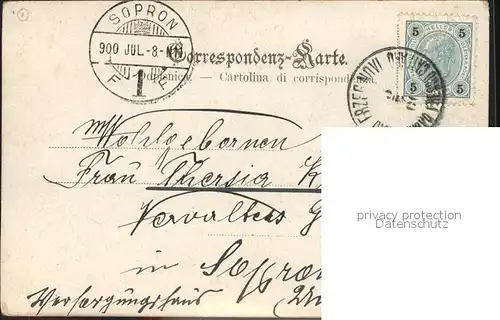 SOPRON
900 JUL.-8.-
1
Correspondenz-Karte.
Dopisnica. — Cartolina di corrispondenza.
5 5
5 5
ERZEG NOVI
Wohlgebornen
Frau Theresia K
Verwalters G
in Sopron
Versorgungshaus
privacy protection
Datenschutz